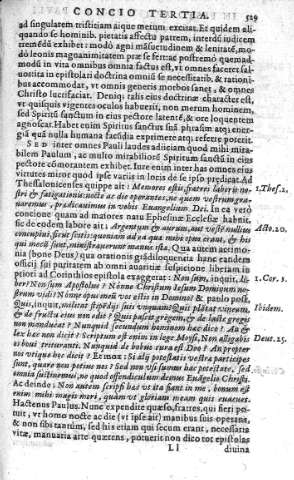 CONCIO TERTIA. 529
ad singularem tristitiam atque metum excitat. Et quidem ali-
quando se hominib. pietatis affectu patrem, interdū iudicem
tremēdū exhibet: modò agni māsuetudinem & lenitatē, mo-
dò leonis magnanimitatem præ se fert ac postremò quemad-
modū in vita omnibus omnia factus est, vt omnes faceret sal-
uos: ita in epistolari doctrina omniū se necessitatib. & rationi-
bus accommodat, vt omnis generis morbos sanet, & omnes
Christo lucrifaciat. Deniq; talis eius doctrinæ character est,
vt quisquis vigentes oculos habuerit, non merum hominem,
sed Spiritū sanctum in eius pectore latentē, & ore loquentem
agnoscat. Habet enim Spiritus sanctus suā phrasim atq; ener-
giā quā nulla humana facūdia exprimere atq; referre poterit.
SED inter omnes Pauli laudes
bilem Paulum, ac multo mirabiliorē Spiritum sanctū in eius
pectore cōmorantem exhibet. Iure enim inter has omnes eius
virtutes miror quod ipse variis in locis de se ipso prædicat. Ad
Thessalonicenses quippe ait: Memores estis, fratres laboris no- 1.Thes.2.
stri & fatigationis: nocte ac die operantes, ne quem vestrum gra-
uaremus, prædicauimus in vobis Euangelium Dei. In ea verò
concione quam ad maiores natu Ephesinæ Ecclesiæ habuit,
sic de eodem labore ait: Argentum & aurum, aut vestē nullius Acto.20.
concupiui, sicut scitis: quoniam ad ea quæ mihi opus erant, & his
qui mecū sunt, ministrauerunt manus istæ. Qua autem acrimo-
nia (bone Deus) qua orationis grādiloquentia hanc eandem
officij sui puritatem ab omni auaritiæ suspicione liberam in
priori ad Corinthios epistola exaggerat: Non sum, inquit, li- 1.Cor.9.
ber? Non sum Apostolus? Nonne Christum Iesum Dominum no-
strum vidi? Nonne opus meū vos estis in Domino? & paulo pòst, Ibidem.
Quis, inquit, militat stipēdijs suis vnquam? Quis plātat vineam,
& de fructu eius non edit? Quis pascit gregem, & de lacte gregis
non manducat? Nunquid secundum hominem hæc dico? An &
lex hæc non dicit? Scriptum est enim in lege Moysi, Non alligabis Deut.25.
os boui trituranti. Nunquid de bobus cura est Deo? An propter
nos vtique hoc dicit? Et mox: Si alij potestatis vestræ participes
sunt, quare non potius nos? Sed non vsi sumus hac potestate. sed
omnia sustinemus, ne quod offendiculum demus Euāgelio Christi.
Ac deinde: Non autem scripsi hæc vt ita fiant in me, bonum est
enim mihi magis mori, quàm vt gloriam meam quis euacuet.
Hactenus Paulus. Nunc expendite quæso, fratres, qui fieri po-
tuit, vt homo nocte ac die (vt ipse ait) manibus suis operans,
& non sibi tantùm, sed his etiam qui secum erant, necessaria
vitæ, manuaria arte quærens, potuerit non dico tot epistolas
Ll diuina